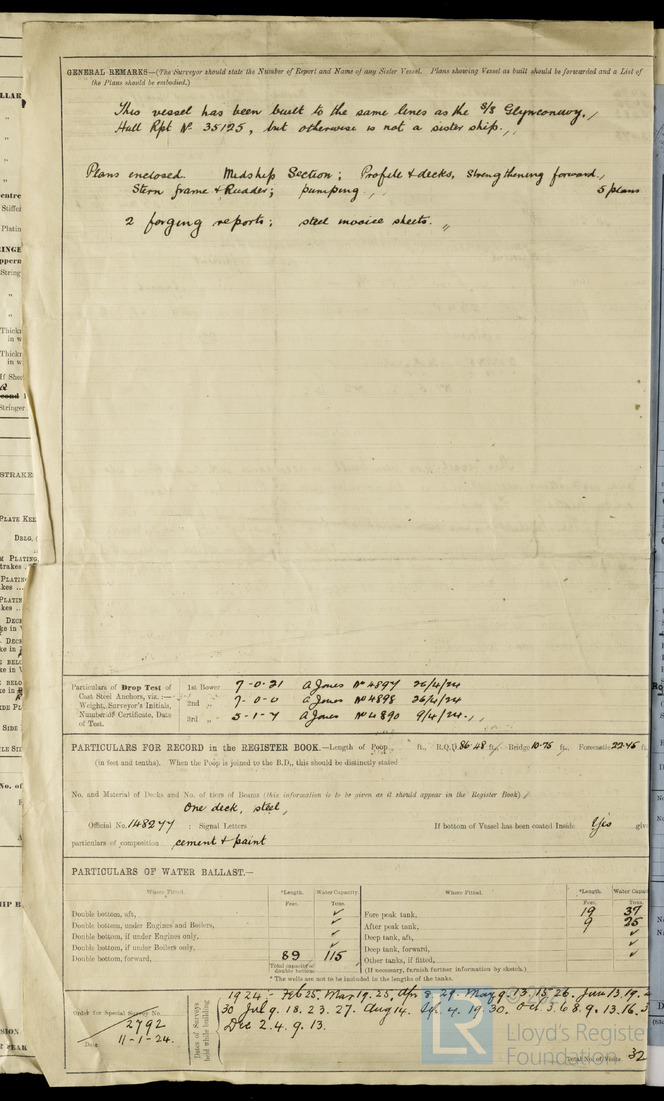 GENERAL REMARKS—(The Surveyor should state the Number of Report and Name of any Sister Vessel. Plans showing Vessel as built should be forwarded and a List of
the Plans should be embodied.)
This vessel has been built to the same lines as the S/S Glynconwy,
Hull Rpt No 35125, but otherwise is not a sister ship.
Plans enclosed. Midship Section; Profile & decks, Strengthening forward,
Stern frame & Rudder; pumping. 5 plans
2 forging reports; steel invoice sheets.
Particulars of Drop Test of
Cast Steel Anchors, viz.:—
Weight, Surveyor's Initials,
Number of Certificate, Date
of Test.
1st Bower 7-0-21 A Jones No 4897 26/4/24
2nd " 7-0-0 A Jones No 4898 26/4/24
3rd " 5-1-7 A Jones No 4890 9/4/24
PARTICULARS FOR RECORD in the REGISTER BOOK.—Length of Poop ft., R.Q.D. 86.48 ft., Bridge 10.75 ft., Forecastle 22.45 ft.
(in feet and tenths). When the Poop is joined to the B.D., this should be distinctly stated
No. and Material of Decks and No. of tiers of Beams (this information is to be given as it should appear in the Register Book)
One deck, steel,
Official No. 148277 ; Signal Letters If bottom of Vessel has been coated Inside Yes give
particulars of composition cement & paint
PARTICULARS OF WATER BALLAST.—
Where Fitted. *Length. Water Capacity. Where Fitted. *Length. Water Capac
Feet. Tons. Feet. Tons.
Double bottom, aft, ✓ Fore peak tank, 19 37
Double bottom, under Engines and Boilers, ✓ After peak tank, 9 25
Double bottom, if under Engines only, ✓ Deep tank, aft, ✓
Double bottom, if under Boilers only, ✓ Deep tank, forward, ✓
Double bottom, forward, 89 115 Other tanks, if fitted, ✓
Total capacity of double bottom (If necessary, furnish further information by sketch.)
* The wells are not to be included in the lengths of the tanks.
Order for Special Survey No.
2792
Date 11-1-24.
Dates of Surveys held while building
1924 - Feb 25. Mar 19. 25. Apr 8. 29. May 9. 13. 15. 26. Jun 13. 19.
30 Jul 9. 18. 23. 27. Aug 14. Sep. 4. 19. 30. Oct. 3. 6. 8. 9. 13. 16.
Dec 2. 4. 9. 13.
Total No. of Visits 32
LR
Lloyd's Register
Foundation